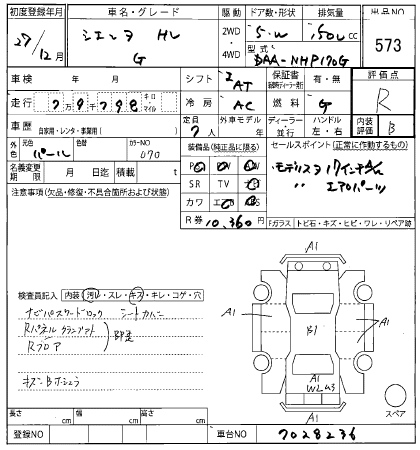 初度登録年月 車名・グレード 駆動 ドア数・形状 排気量 出品NO
27/12月 シエンタ HV G 2WD・4WD 5・W 1500cc 573
型式 DAA-NHP170G
車検 年 月 シフト AT 保証書 有・無 評価点
走行 キロ・マイル 冷房 AC 燃料 G R
車歴 自家用・レンタ・事業用( ) 定員 7人 外車モデル 年 ディーラー・並行 ハンドル 左・右 内装評価 B
外色 元色 パール 色替 カラーNO 070 装備品(純正品に限る) セールスポイント(正常に動作するもの)
名義変更期限 月 日迄 積載 t PS AW SR TV カワ
モデリスタ 17インチAW
〃 エアロパーツ
注意事項(欠品・修復・不具合箇所および状態)
R券 10,360円 Fガラス・トビ石・キズ・ヒビ・ワレ・リペア跡
検査員記入 内装・汚レ・スレ・キズ・キレ・コゲ・穴
ナビパスワードロック シートカバー
Rパネル クランプアト
Rフロア
A1
A1
B1
A1
A1
W2 W3
A1
スペア
長さ cm 幅 cm 高さ cm
登録NO 車台NO 7028236